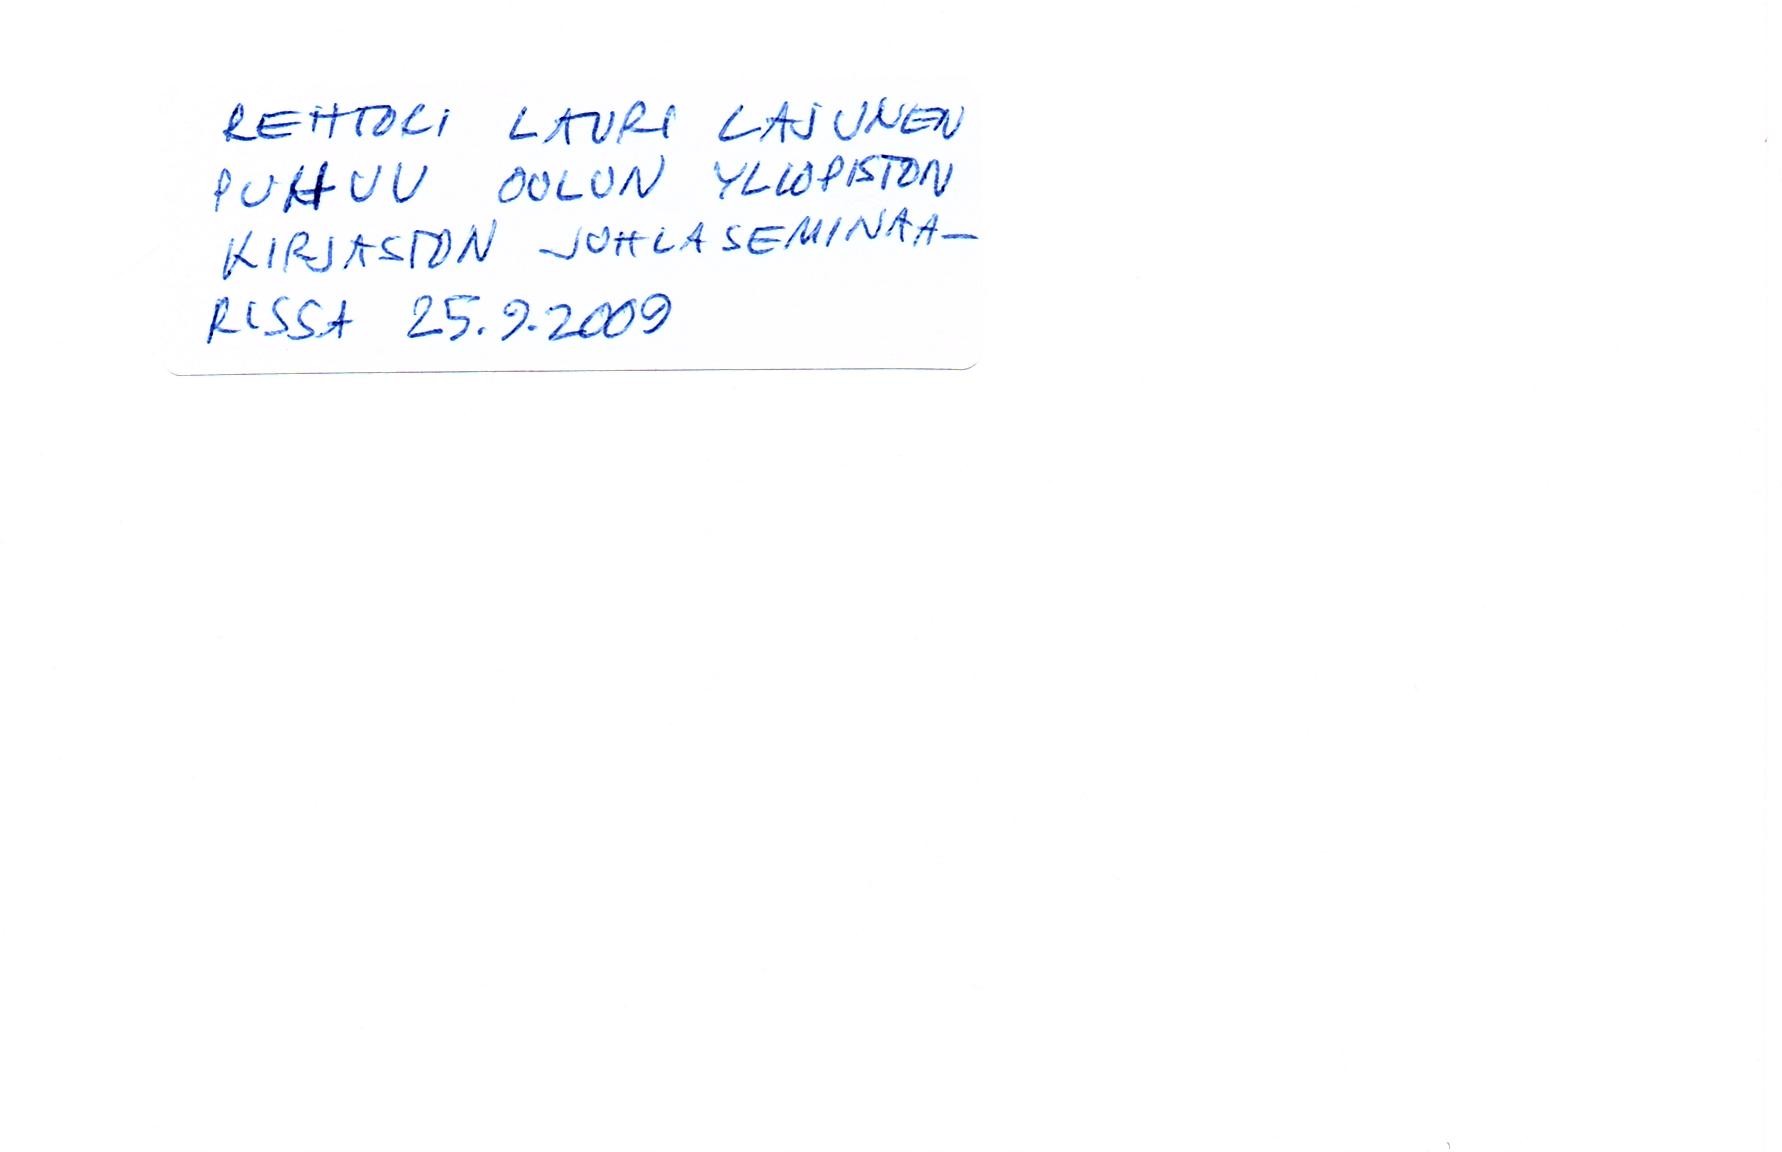 REHTORI LAURI LAJUNEN
PUHUU OULUN YLIOPISTON
KIRJASTON JUHLASEMINAA-
RISSA 25.9.2009